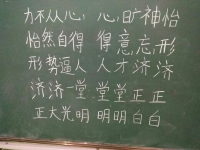 力不从心，心旷神怡
怡然自得 得意忘形
形势逼人 人才济济
济济一堂 堂堂正正
正大光明 明明白白